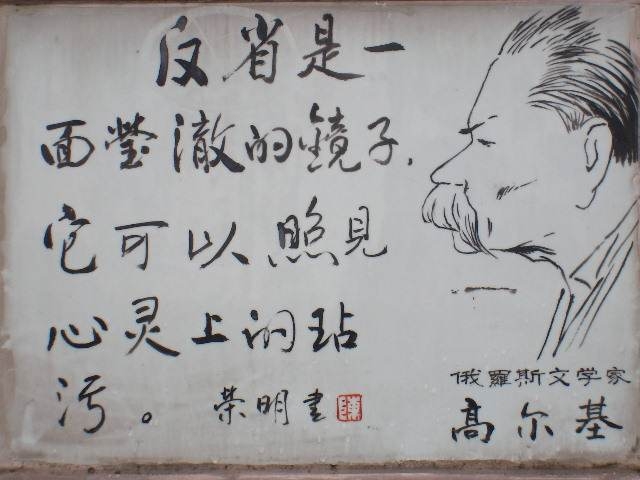 反省是一
面莹澈的鏡子,
它可以照見
心灵上的玷
污。 荣明書
俄羅斯文学家
高尔基